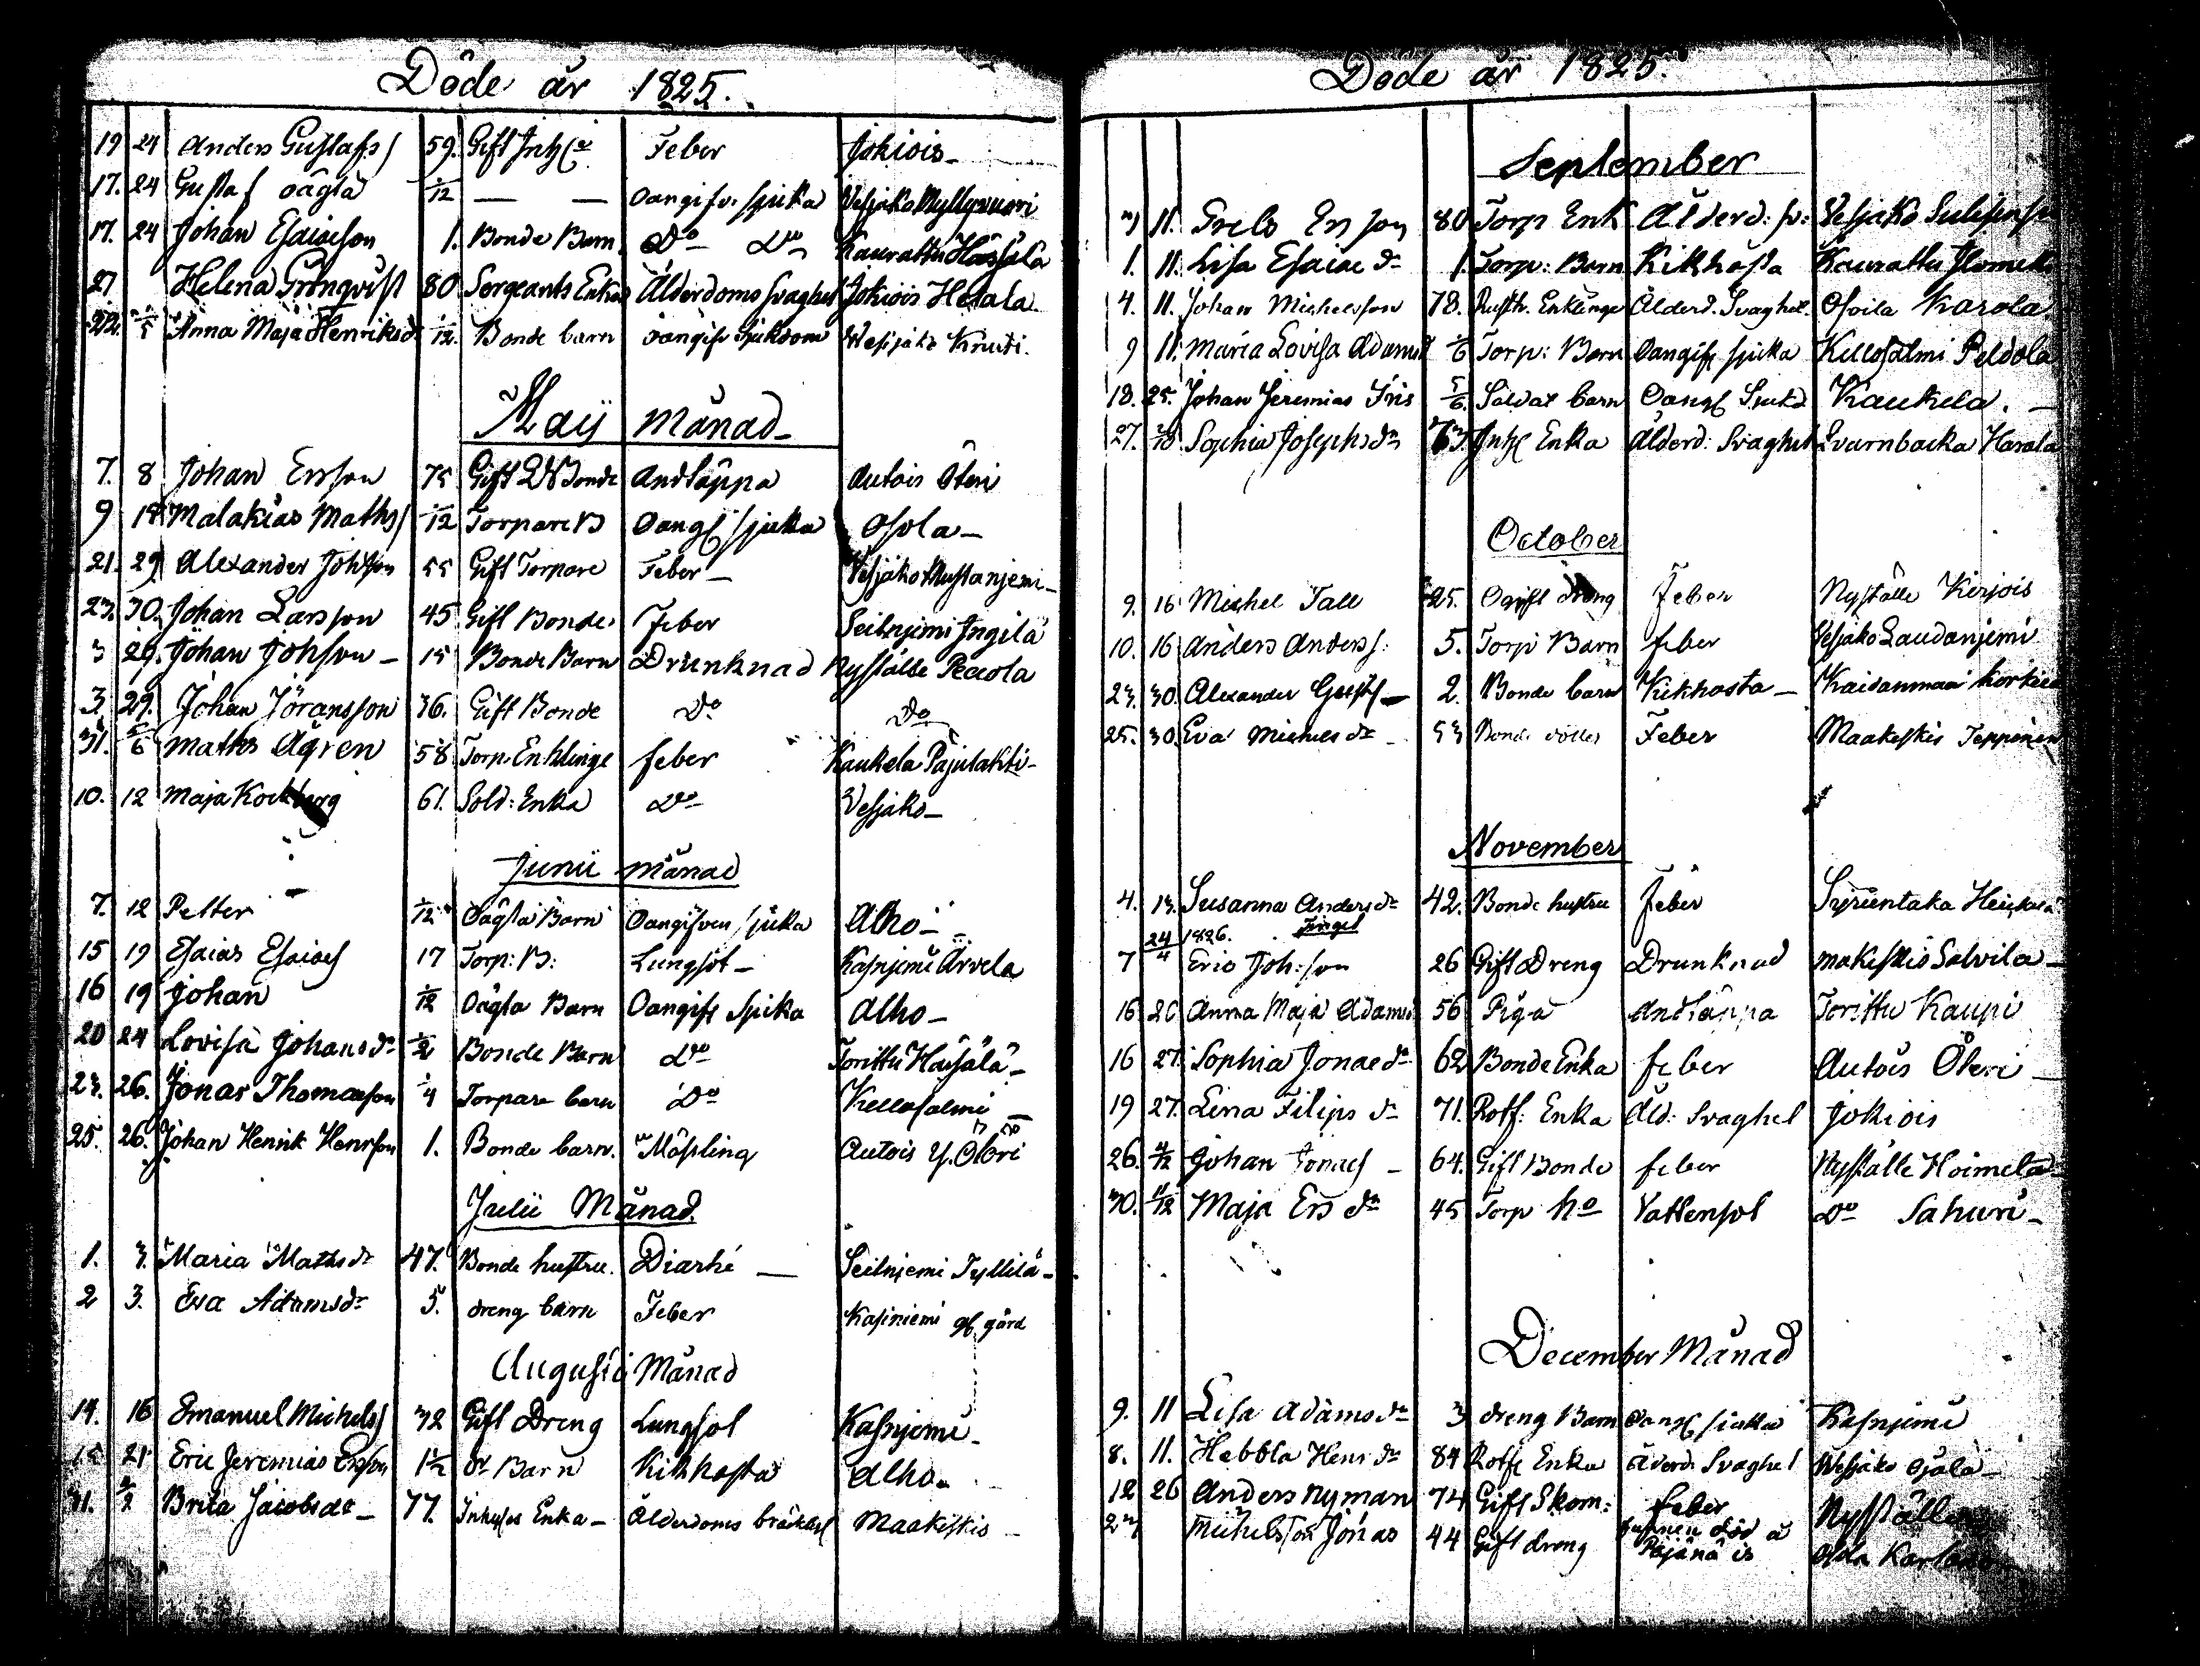 Döde år 1825.
19 24 Anders Gustafs/ 59. Gift Inh Feber Jokiois
17. 24 Gustaf oägta 1/12 — — Oangifv. sjuka Vesjako Myllyvuori
17. 24 Johan Esaiæson 1. Bonde Barn Do Do Kaurattu Hassala
27 Helena Grönqvist 80 Sergeants Enka Ålderdoms svaghet Jokiois Hetala
22. 1/5 Anna Maja Henriksdr 1/12. Bonde barn oangifv Sjukdom Wesijako Knuti.
Maij månad
7. 8 Johan Ersson 75 Gift Bonde Andtäppa Autois Öteri
9 18 Malakias Maths/ 1/12 Torpare B Oangf sjuka Osola
21. 29 Alexander Johsson 55 Gift Torpare Feber Vesjako Mustanjemi
23. 30. Johan Larsson 45 Gift Bonde Feber Seitnjemi Ingilä
3 29. Johan Johsson 15 Bonde Barn Drunknad Nystälte
3. 29. Johan Jöransson 36. Gift Bonde Do Do
31. 5/6 Maths Ågren 58 Torp. Enklinge feber Kaukela Pajulakti
10. 12 Maja Kockberg 61. Sold: Enka Do Vesjako
Junii månad
7. 12 Petter 1/12 Oägta Barn Oangifven sjuka Alho
15 19 Esaias Esaiæs 17 Torp: B: Lungsot Kasnjemi Arvela
16 19 Johan 1/12 Oägta Barn Oangifv Sjuka Alho
20 24 Lovisa Johansdr 1/2 Bonde Barn Do Torittu Haisälä
23. 26. Jonas Thomæson 1/4 Torpare barn Do Kellosalmi
25. 26. Johan Henrik Henrson 1. Bonde barn. Mässling Autois Y. Öteri
Julii Månad
1. 3. Maria Mathsdr 47. Bonde hustru. Diarhé — Seitnjemi Tyllilä
2 3. Eva Adamsdr 5. dreng barn Feber Kasiniemi gård
Augusti Månad
14. 16 Emanuel Michels/ 32 Gift Dreng Lungsot Kasnjemi
15 21 Eric Jeremias Ersson 1 1/2 dr Barn Kikhosta Alho
31. 2/9 Brita Jacobsdr 77. Inhyses Enka Ålderdoms bräckl Maakeskis
Döde år 1825.
September
11. Ersson 80 Torp Enk Ålderd: sv: Vesjako
1. 11. Lisa Esaiæ dr 1. Torp: Barn Kikhosta Kaurattu
4. 11. Johan Michelsson 78. Rusth. Enklinge Ålderd. Svaghet. Osoila Karola
9 11. Maria Lovisa Adamsd 5/6 Torp: Barn Oangifv sjuka Kellosalmi Peldola
18. 25. Johan Jeremias Iris 5/6. Soldat barn Oangf Sjukd Kaukela. —
27. 2/10 Sophia Josephsdr 63. Inh Enka Ålderd: Svaghet Qvarnbacka Harala
October
9. 16 Michel Tall 25. Ogift dreng Feber Nystälte Kirjois
10. 16 Anders Anders/. 5. Torp Barn feber Vesjako Laudanjemi
23. 30. Alexander Gustf 2. Bonde barn Kikhosta — Kaidanmaa
25. 30 Eva Michelsdr 53 Bonde dotter Feber Maakeskis Teppinen
November
4. 13. Susanna Andersdr 42. Bonde hustru Feber Syrientaka
7 24/4 1826. Eric Joh:son 26 Gift Dreng Drunknad Makeskis Salvila
16 20 Anna Maja Adamsd 56 Piga Andtäppa Torittu Kaupi
16 27. Sophia Jonædr 62 Bonde Enka feber Autois Öteri
19 27. Lena Filips dr 71. Rotf: Enka Åld: Svaghet Jokiois
26. 4/12 Johan Jonæs 64. Gift Bonde feber Nystälte Hoimela
30. 11/12 Maja Ers dr 45 Torp ho Vattensot Do Sahuri
December Månad
9. 11 Lisa Adamsdr 3 dreng Barn Oangf sjukd Kasnjemi
8. 11. Hebbla Hens dr 84 Rotf Enka Ålderd: Svaghet Wesjako Ojala
12 26 Anders Nyman 74 Gift Skom: feber Nystälte
23 Michelsson Jonas 44 Gift dreng funnen död å Päjänä is